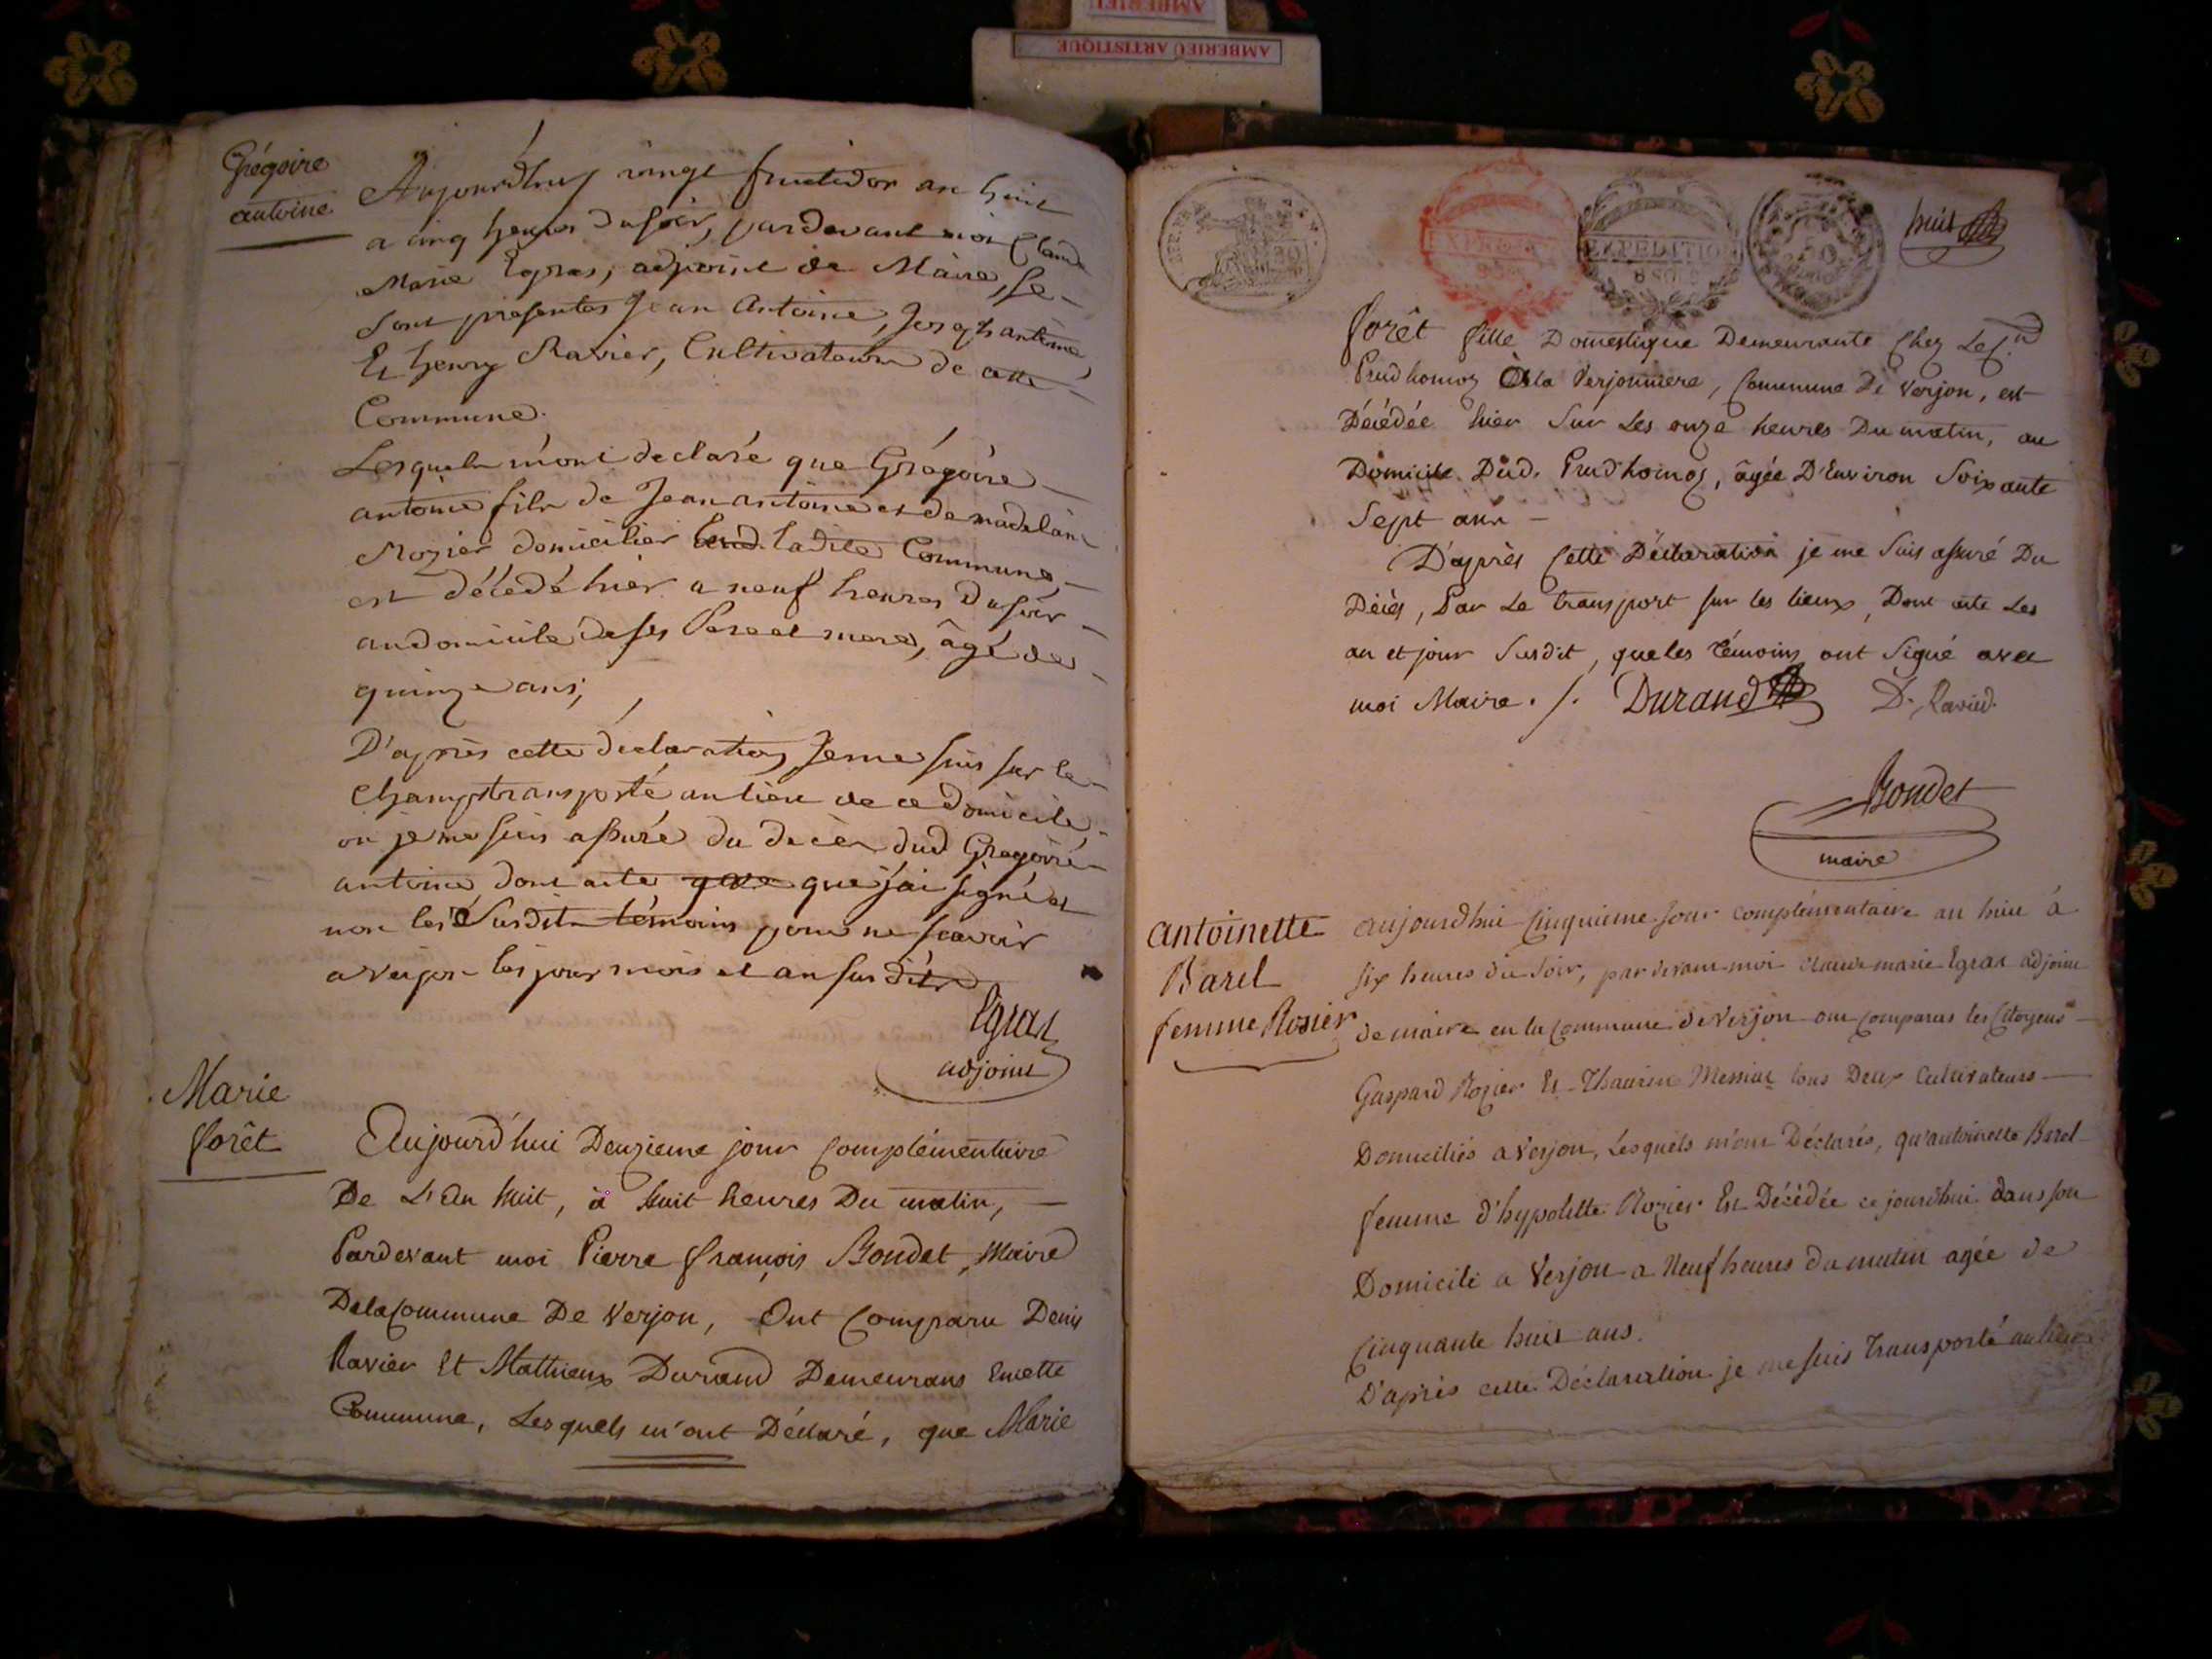 AMBERIEU
AMBERIEU ARTISTIQUE
Grégoire
antoine
Aujourdhuy vingt fructidor an huit
a cinq heures du soir, pardevant moi Claude
Marie Egras, adjoint de Maire, se
sont presentes Jean Antoine, Joseph antoine,
Et henry Ravier, Cultivateurs de cette
Commune.
Lesquels m'ont declaré que Grégoire
antoine fils de Jean antoine et de madelaine
Rozier domicilier ladite Commune
est décédé hier a neuf heures du soir
au domicile de ses Pere et mere, âgé de
quinze ans;
D'après cette déclaration Je me suis sur le
Champ transporté au lieu de ce domicile,
ou je me suis assuré du decès dud Gregoire
antoine, dont acte que j'ai signé et
non les Susdits témoins pour ne scavoir
a verjon les jour mois et an susdits
Egras
adjoint
Marie
forêt
Aujourd'hui Deuzieme jour complémentaire
De L'an huit, à huit heures Du matin,
Pardevant moi Pierre françois Bondet, Maire
De la Commune De Verjon, Ont Comparu Denis
Ravier Et Mathieux Durand Demeurans En cette
Commune, Lesquels m'ont Déclaré, que Marie
EXPÉDITION
huit
forêt fille Domestique Demeurante Chez Le C.n
Prudhomoz à la Verjonniere, Commune De Verjon, est
Décédée hier Sur Les onze heures Du matin, au
Domicile Dud. Prudhomoz, âgée D'Environ Soixante
Sept ans
D'après Cette Déclaration je me Suis assuré Du
Décès, Par Le transport sur les lieux, Dont acte Les
an et jour Susdit, que les témoins ont Signé avec
moi Maire. /. Durand D. Ravied.
Bondet
maire
Antoinette
Barel
femme Rosier
aujourdhui Cinquieme Jour complémentaire an huit à
six heures du Soir, par devant moi claude marie Egras adjoint
de maire en la Commune de Verjon ont Comparus les Citoyens
Gaspard Rozier Et Thaurin Messiat tous Deux Cultivateurs
Domiciliés a Verjon, Lesquels m'ont Déclarés, qu'antoinette Barel
femme d'hypolitte Rozier Est Décédée ce jourdhui dans son
Domicile a Verjon a Neuf heures du matin agée de
Cinquante huit ans.
D'après cette Déclaration je me suis transporté au lieu